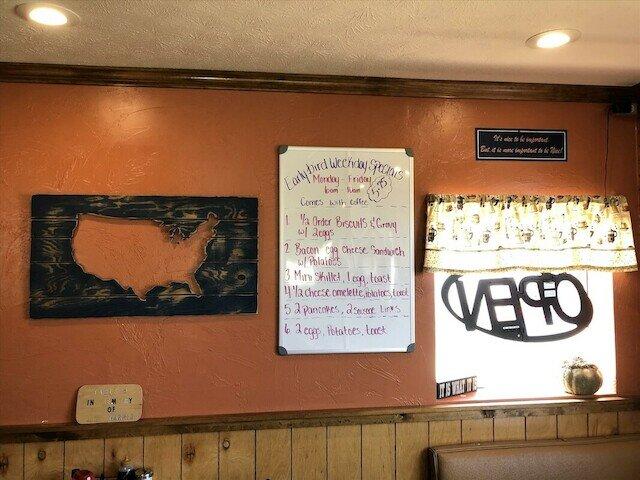 It's nice to be important
But it is more important to be Nice!
Early bird Weekday Specials
Monday - Friday
6am 11am
Comes with coffee
1 1/2 Order Biscuits & Gravy
w/ 2 eggs
2 Bacon egg cheese Sandwich
w/ Potatoes
3 Mini Skillet, 1 egg, toast
4 1/2 Cheese omelette, Potatoes, toast
5 2 Pancakes, 2 Sausage Links
6 2 eggs, Potatoes, toast
OPEN
IT IS WHAT IT
IN
OF